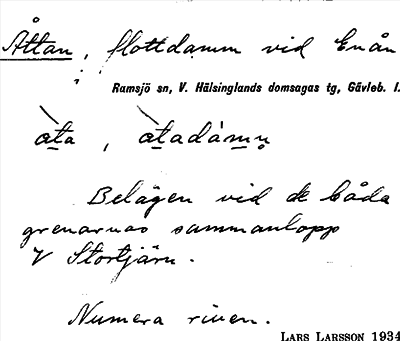 Åttan, flottdamm vid Enån
Ramsjö sn, V. Hälsinglands domsagas tg, Gävleb. l.
àta, àtadámn̥
Belägen vid de båda
grenarnas sammanlopp
V Stortjärn.
Numera riven.
LARS LARSSON 1934